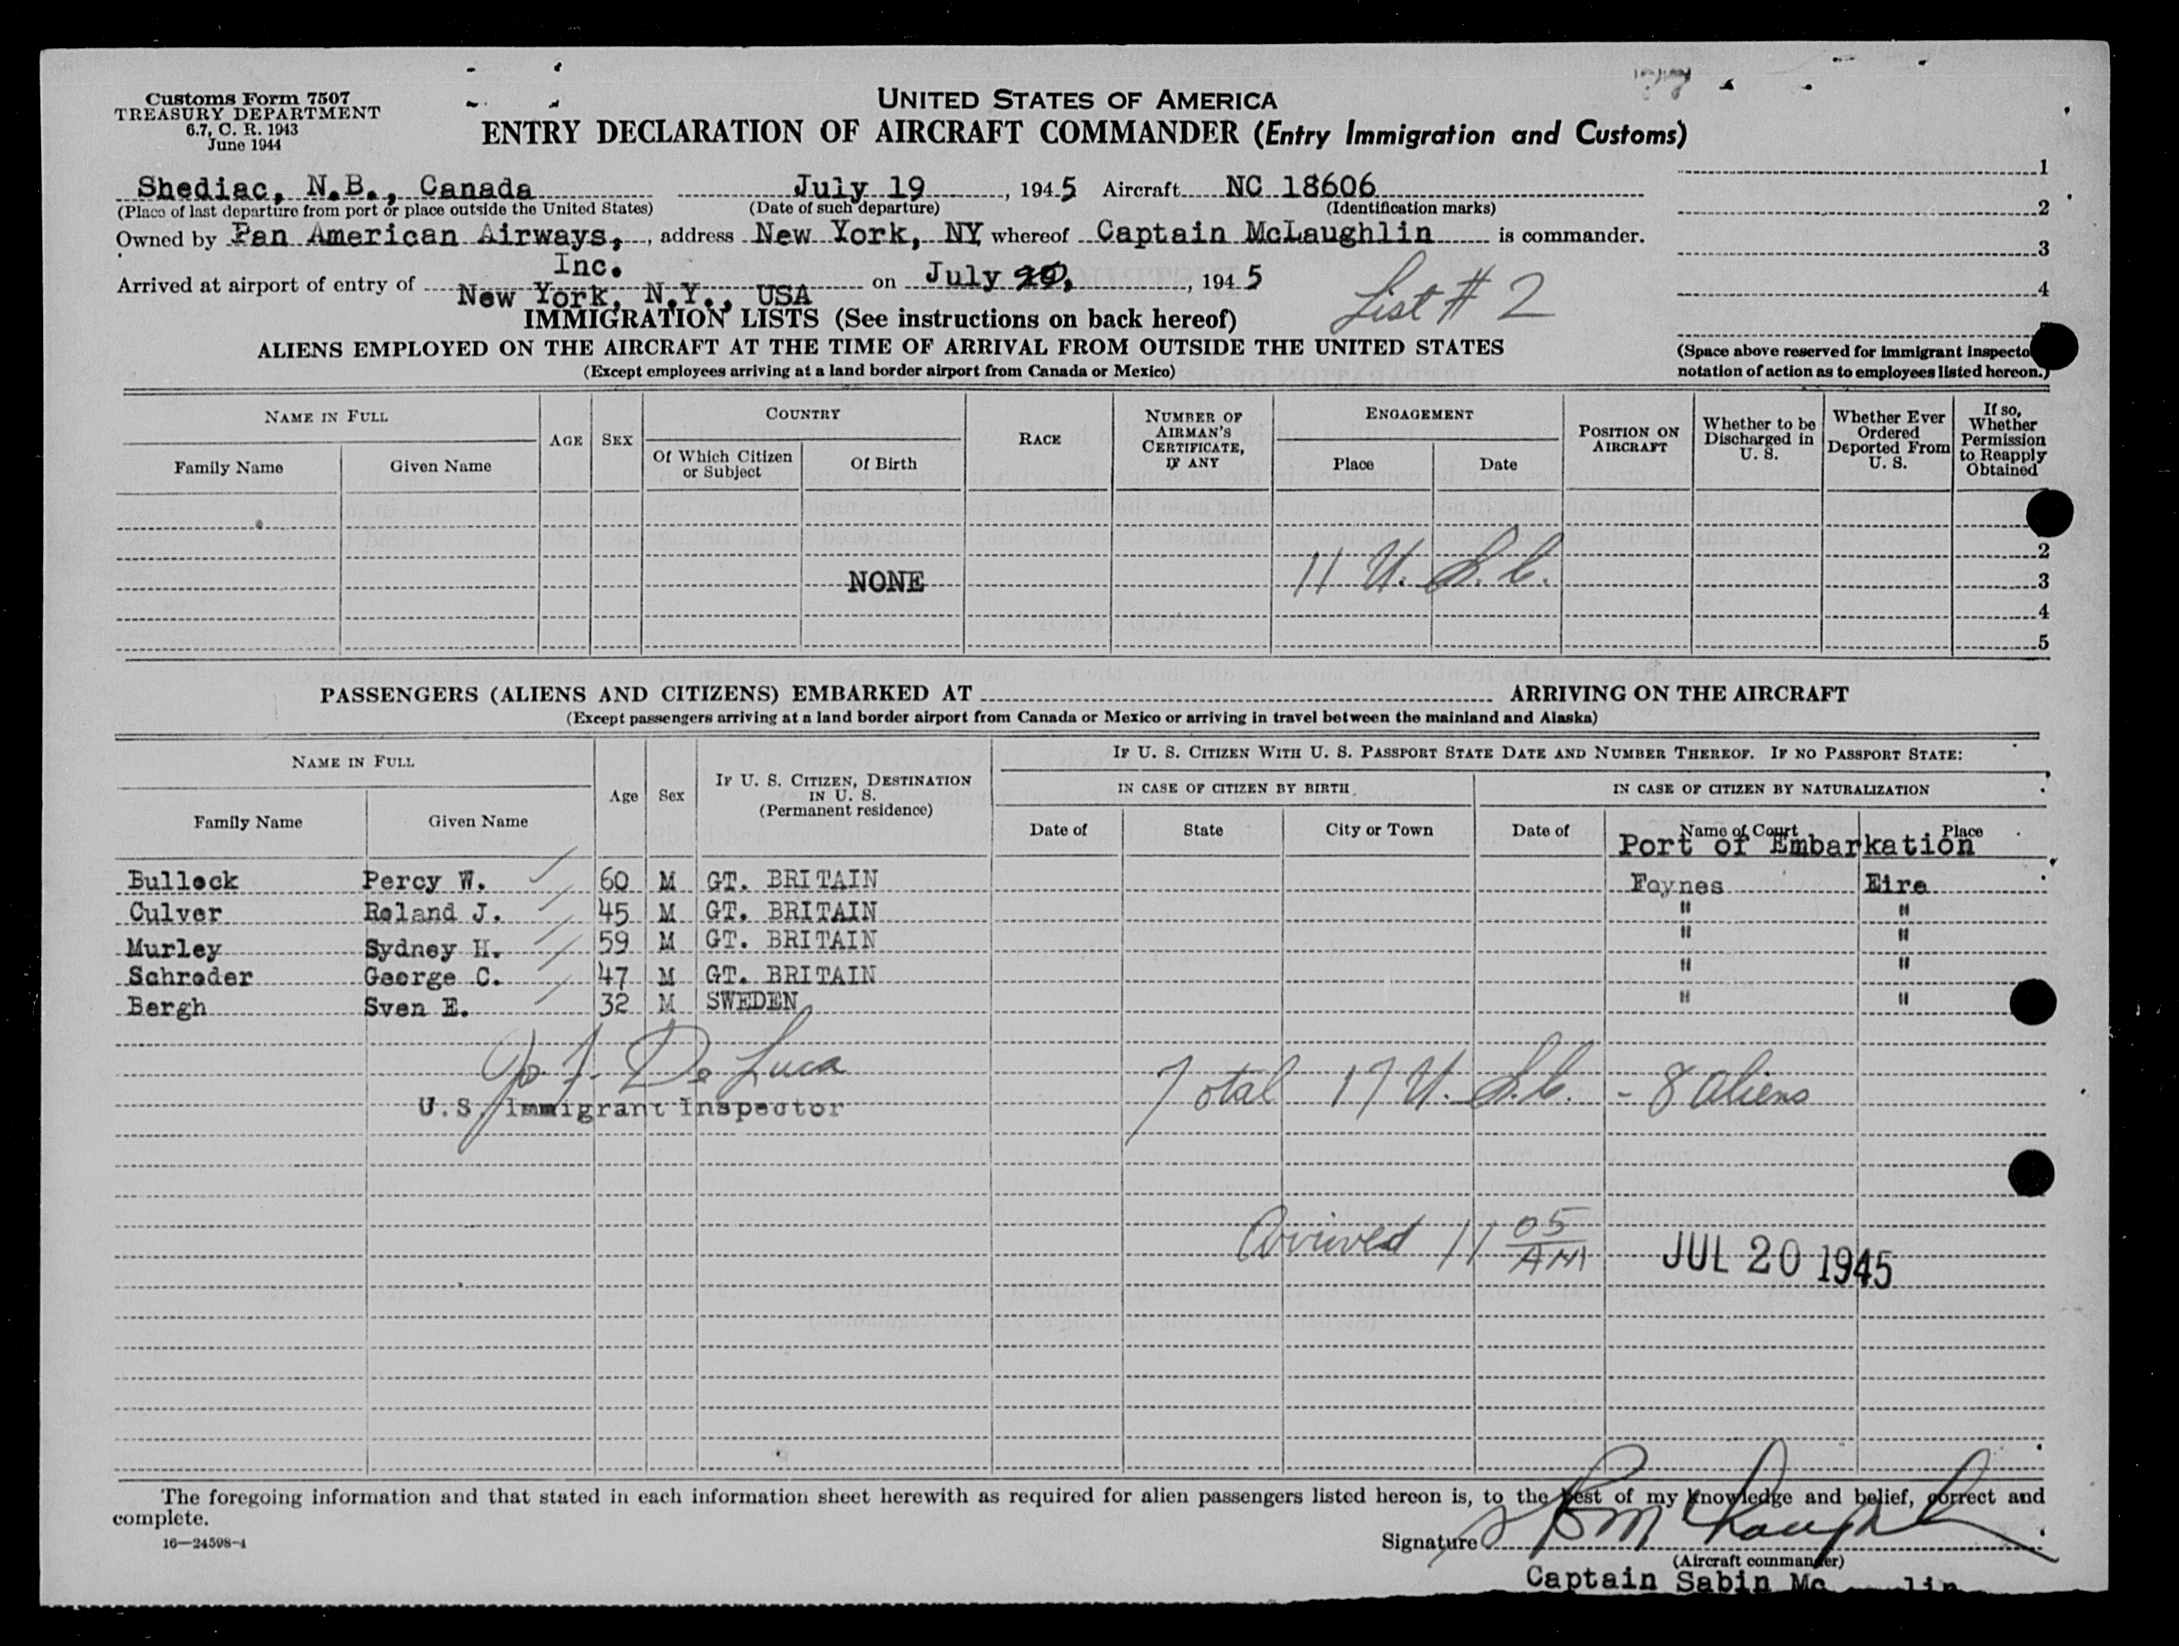 Customs Form 7507
TREASURY DEPARTMENT
6.7, C. R. 1943
June 1944
UNITED STATES OF AMERICA
ENTRY DECLARATION OF AIRCRAFT COMMANDER (Entry Immigration and Customs)
Shediac, N.B., Canada July 19, 1945 Aircraft NC 18606
(Place of last departure from port or place outside the United States) (Date of such departure) (Identification marks)
Owned by Pan American Airways, Inc., address New York, NY, whereof Captain McLaughlin is commander.
Arrived at airport of entry of New York, N.Y., USA on July 20, 1945
List # 2
1
2
3
4
IMMIGRATION LISTS (See instructions on back hereof)
ALIENS EMPLOYED ON THE AIRCRAFT AT THE TIME OF ARRIVAL FROM OUTSIDE THE UNITED STATES
(Except employees arriving at a land border airport from Canada or Mexico)
(Space above reserved for immigrant inspecto
notation of action as to employees listed hereon.)
NAME IN FULL AGE SEX COUNTRY RACE NUMBER OF AIRMAN'S CERTIFICATE, IF ANY ENGAGEMENT POSITION ON AIRCRAFT Whether to be Discharged in U. S. Whether Ever Ordered Deported From U. S. If so, Whether Permission to Reapply Obtained
Family Name Given Name Of Which Citizen or Subject Of Birth Place Date
2
NONE 11 U.S.C. 3
4
5
PASSENGERS (ALIENS AND CITIZENS) EMBARKED AT ARRIVING ON THE AIRCRAFT
(Except passengers arriving at a land border airport from Canada or Mexico or arriving in travel between the mainland and Alaska)
NAME IN FULL Age Sex IF U. S. CITIZEN, DESTINATION IN U. S. (Permanent residence) IF U. S. CITIZEN WITH U. S. PASSPORT STATE DATE AND NUMBER THEREOF. IF NO PASSPORT STATE:
IN CASE OF CITIZEN BY BIRTH IN CASE OF CITIZEN BY NATURALIZATION
Family Name Given Name Date of State City or Town Date of Name of Court Place
Port of Embarkation
Bullock Percy W. 60 M GT. BRITAIN Foynes Eire
Culver Roland J. 45 M GT. BRITAIN " "
Murley Sydney H. 59 M GT. BRITAIN " "
Schroder George C. 47 M GT. BRITAIN " "
Bergh Sven E. 32 M SWEDEN " "
De Luca
U.S. Immigrant Inspector
Total 17 U.S.C. - 8 aliens
Arrived 11 05 AM JUL 20 1945
The foregoing information and that stated in each information sheet herewith as required for alien passengers listed hereon is, to the best of my knowledge and belief, correct and
complete.
16—24598-1
Signature S McLaughlin
(Aircraft commander)
Captain Sabin Mc lin